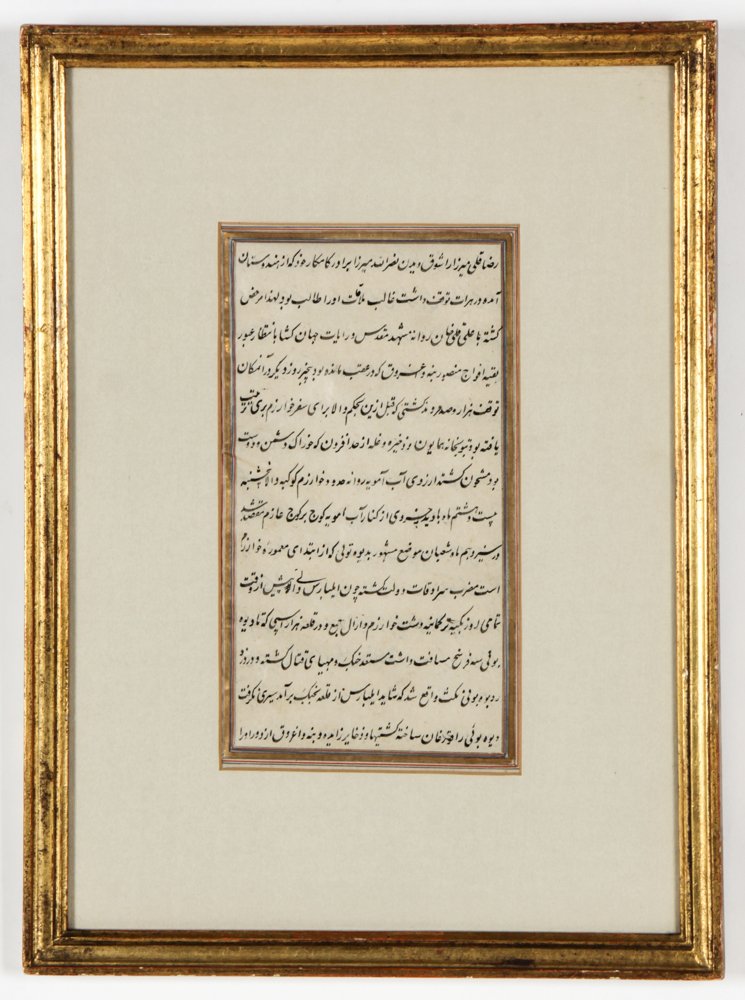 رضا قلی میرزا را شوق دیدن نصر الله میرزا برادر کامکار خود که از هندوستان
آمده در هرات توقف داشت غالب ملاقات او را طالب بود لهذا مرخص
گشته با علی قلی خان روانه مشهد مقدس و رایات جهان کشا بانتظار عبور
بقیه افواج منصور بنه و اغروق که در عقب مانده بود پنجروز دیگر در آنمکان
توقف هزار و صد فروند کشتی که قبل ازین بحکم والا برای سفر خوارزم
یافته بود بتوپخانه همایون و ذخیره و غله از حد افزون که خوراک دشمن و دوست
بود مشحون گشته از روی آب آمویه روانه حدود خوارزم کوکبه والا پنجشنبه
بیست و هشتم ماه از کنار آب امویه کوچ بر کوچ عازم مقصد شد
در سیزدهم ماه شعبان موضع مشهور بدیوه بوئی که از ابتدای معموره خوارزم
است مضرب سرادقات دولت گشته چون ایلبارس والی پیش از وقت
تمامی ترکمانیه دشت خوارزم و آرال جمع و در قلعه هزار اسپی که تا دیوه
بوئی سه فرسخ مسافت داشت مستعد جنگ و مهیای قتال گشته و در روز
در دیوه بوئی مکث واقع شد که شاید ایلبارس از قلعه بجنگ برآمد سیری نگرفت
دیوه بوئی را ساخته کشتیها و ذخایر زایده و بنه و اغروق از دور اورا